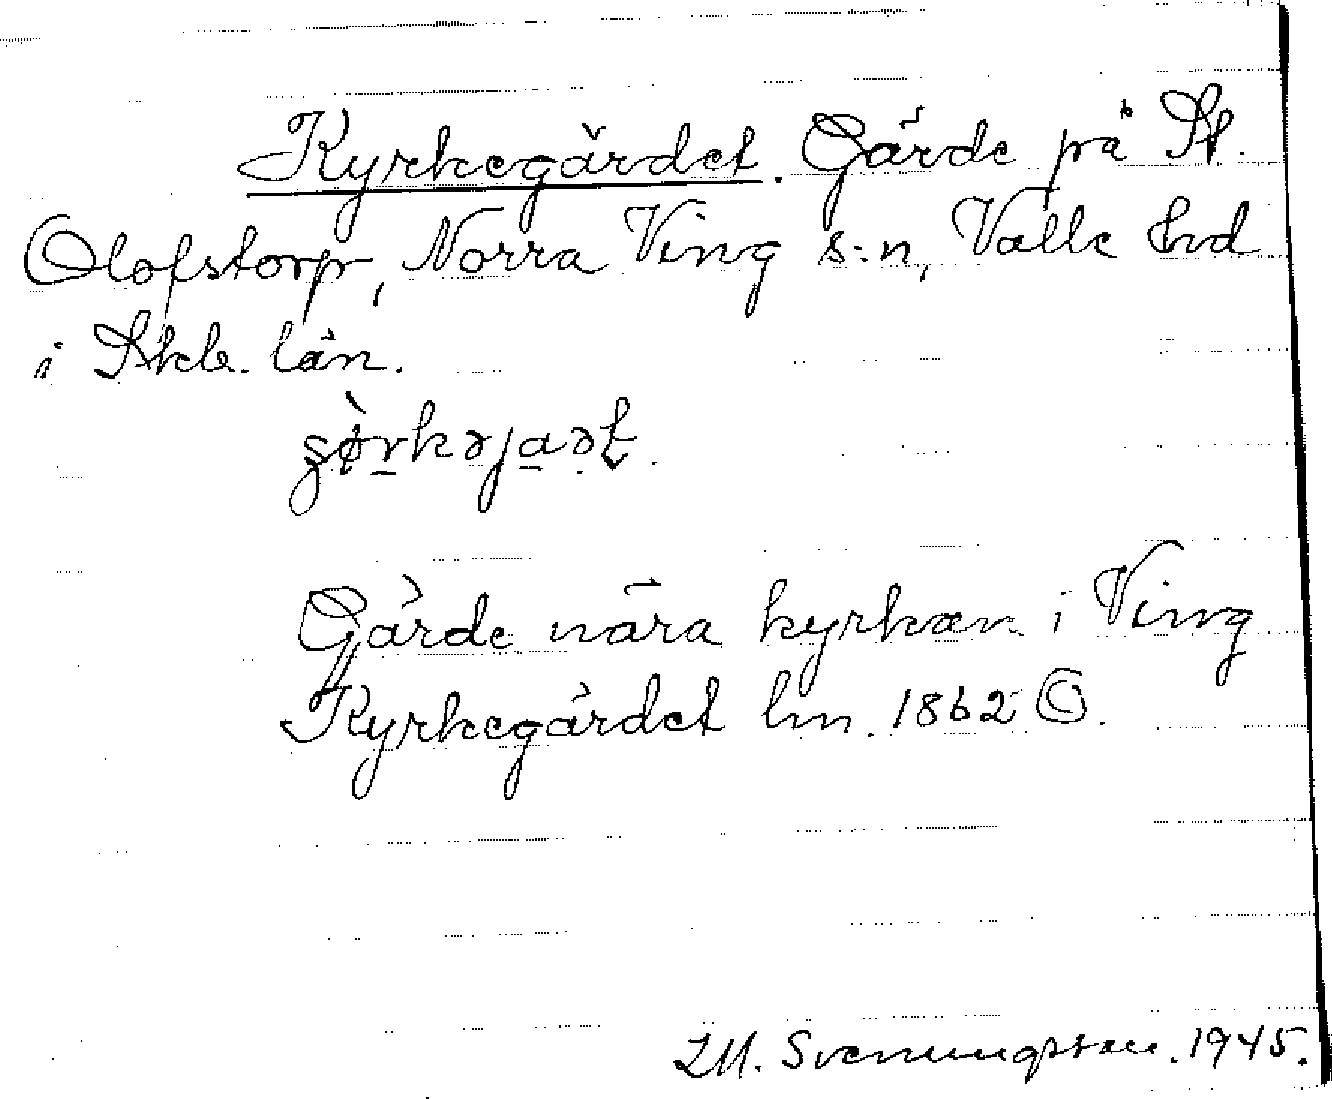 Kyrkegärdet. Gärde på St.
Olofstorp, Norra Ving s:n, Valle hd
i Skb. län.
Gärde nära kyrkan i Ving
Kyrkegärdet lm. 1862 ©.
Svenungsson. 1945.